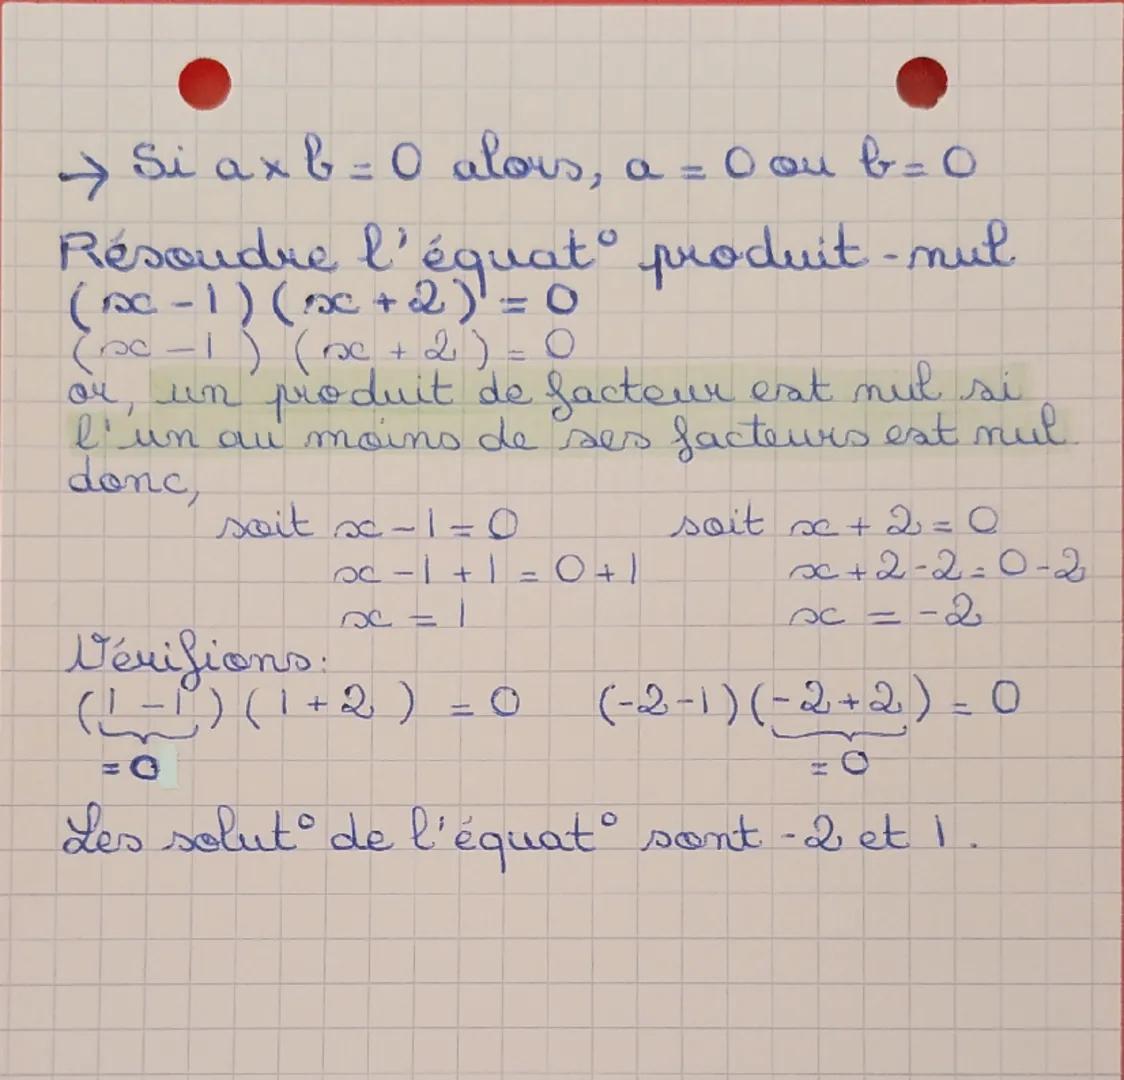 → Si a x b = 0 alors, a = 0 ou b = 0
Résoudre l'équat° produit-nul
(x - 1) (x + 2) = 0
(x - 1) (x + 2) = 0
or, un produit de facteur est nul si
l'un au moins de ses facteurs est nul.
donc,
soit x - 1 = 0 soit x + 2 = 0
x - 1 + 1 = 0 + 1 x + 2 - 2 = 0 - 2
x = 1 x = -2
Vérifions:
(1 - 1) (1 + 2) = 0 (-2 - 1) (-2 + 2) = 0
= 0 = 0
Les solut° de l'équat° sont -2 et 1.